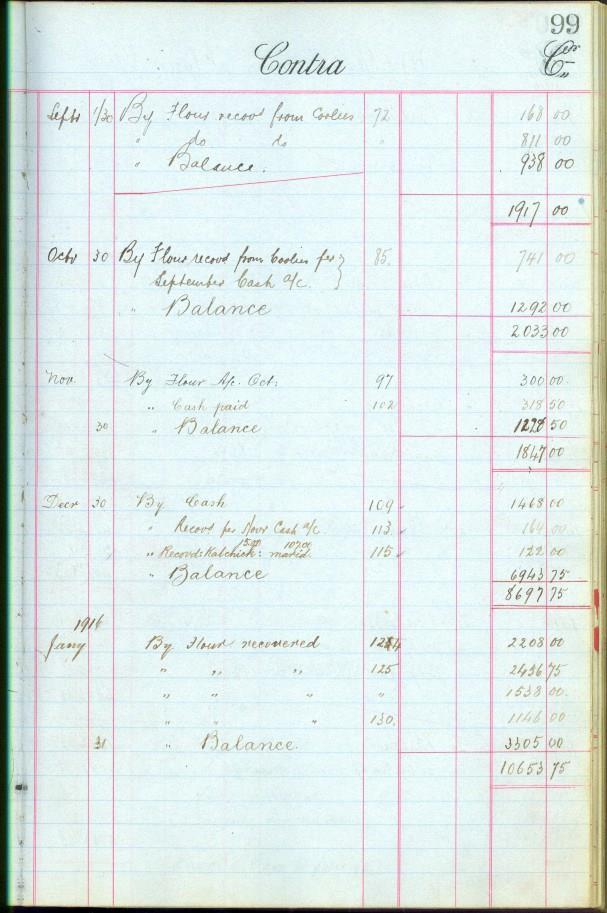 99
Contra
Cr
Septr 1/30 By Flour recovd from Coolies 72 168 00
" do do " 811 00
" Balance. 938 00
1917 00
Octr 30 By Flour recovd from Coolies per } 85. 741 00
September Cash a/c.
" Balance 1292 00
2033 00
Nov. By Flour A/c. Oct: 97 300 00
" Cash paid 102 318 50
30 " Balance 1228 50
1847 00
Decr 30 By Cash 109 1468 00
" Recovd per Novr Cash a/c 113. 164 00
15.00 107.00
" Recovd: Kalchick: marid. 115 122 00
" Balance 6943 75
8697 75
1916
Jany By Flour recovered 124 2208 00
" " " 125 2456 75
" " " " 1538 00.
" " " 130. 1146 00
31 " Balance. 3305 00
10653 75